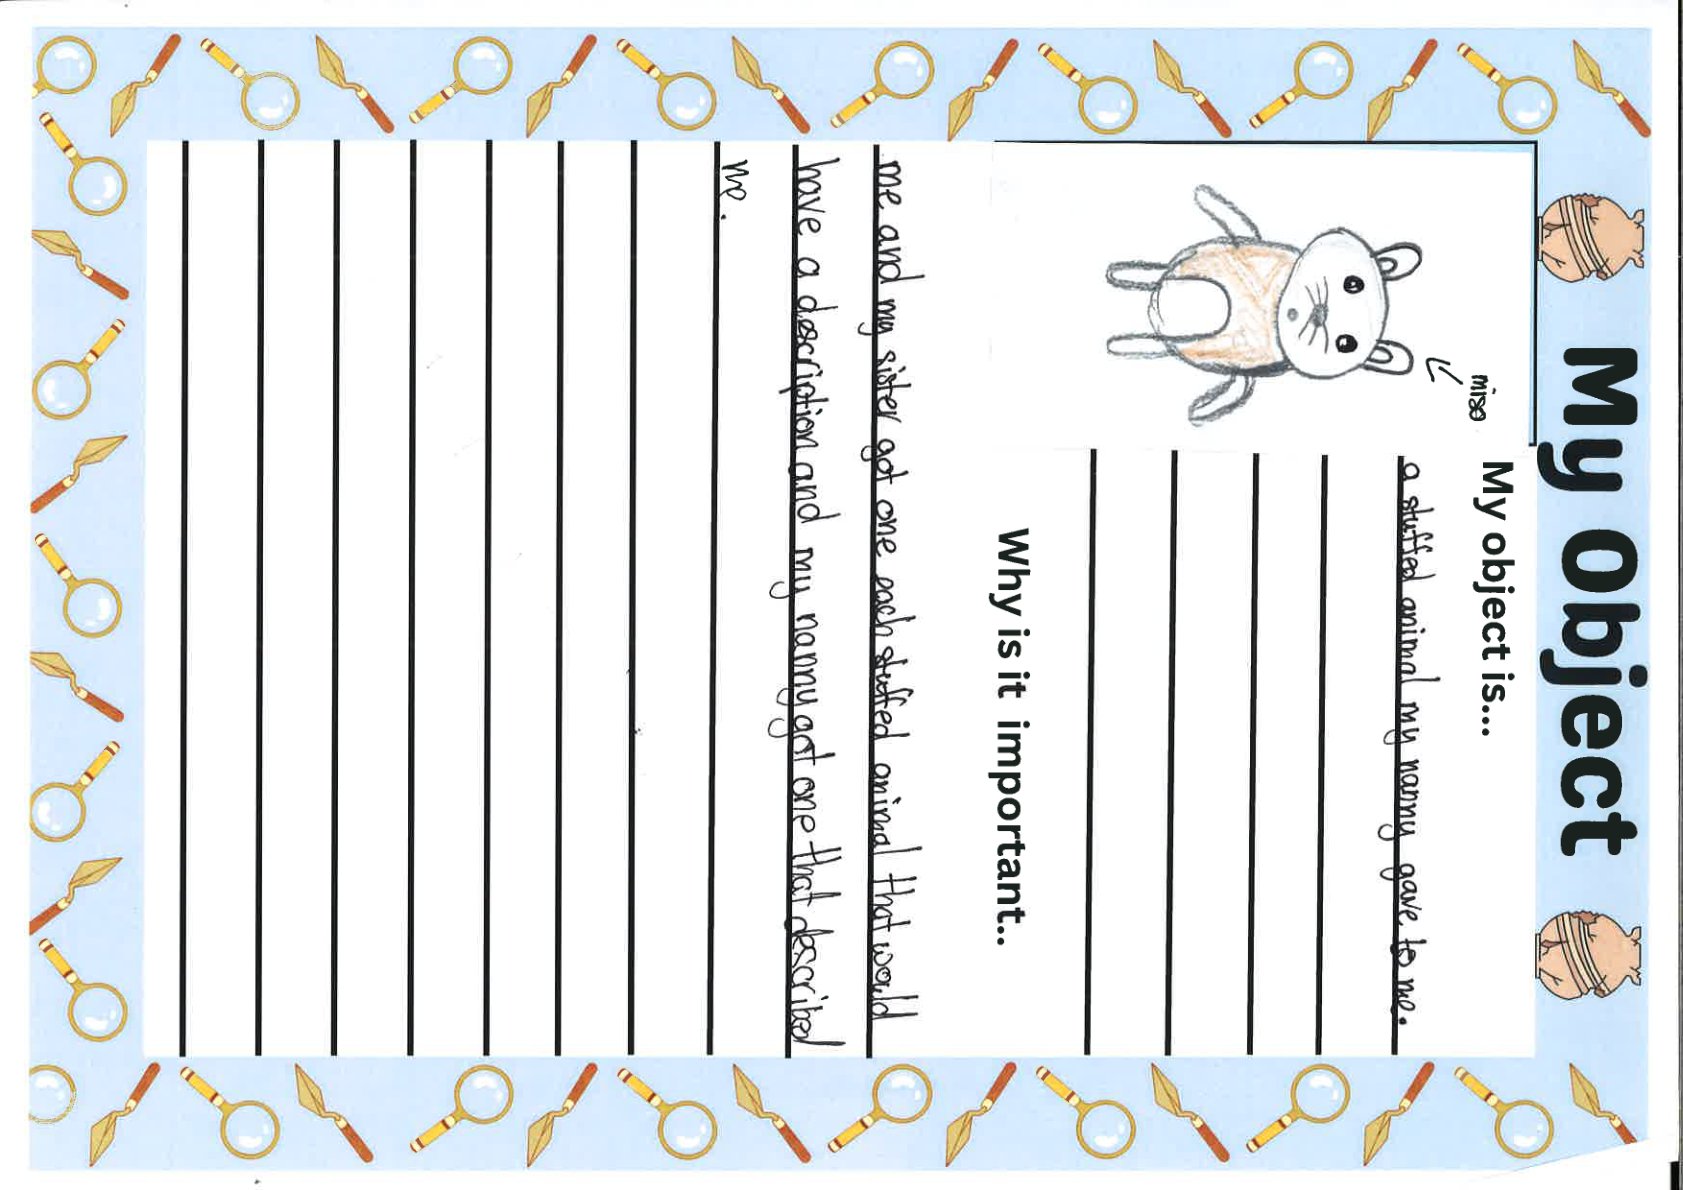 My Object
miso
My object is...
a stuffed animal my nanny gave to me.
Why is it important..
me and my sister got one each stuffed animal that would
have a description and my nanny got one that described
me.